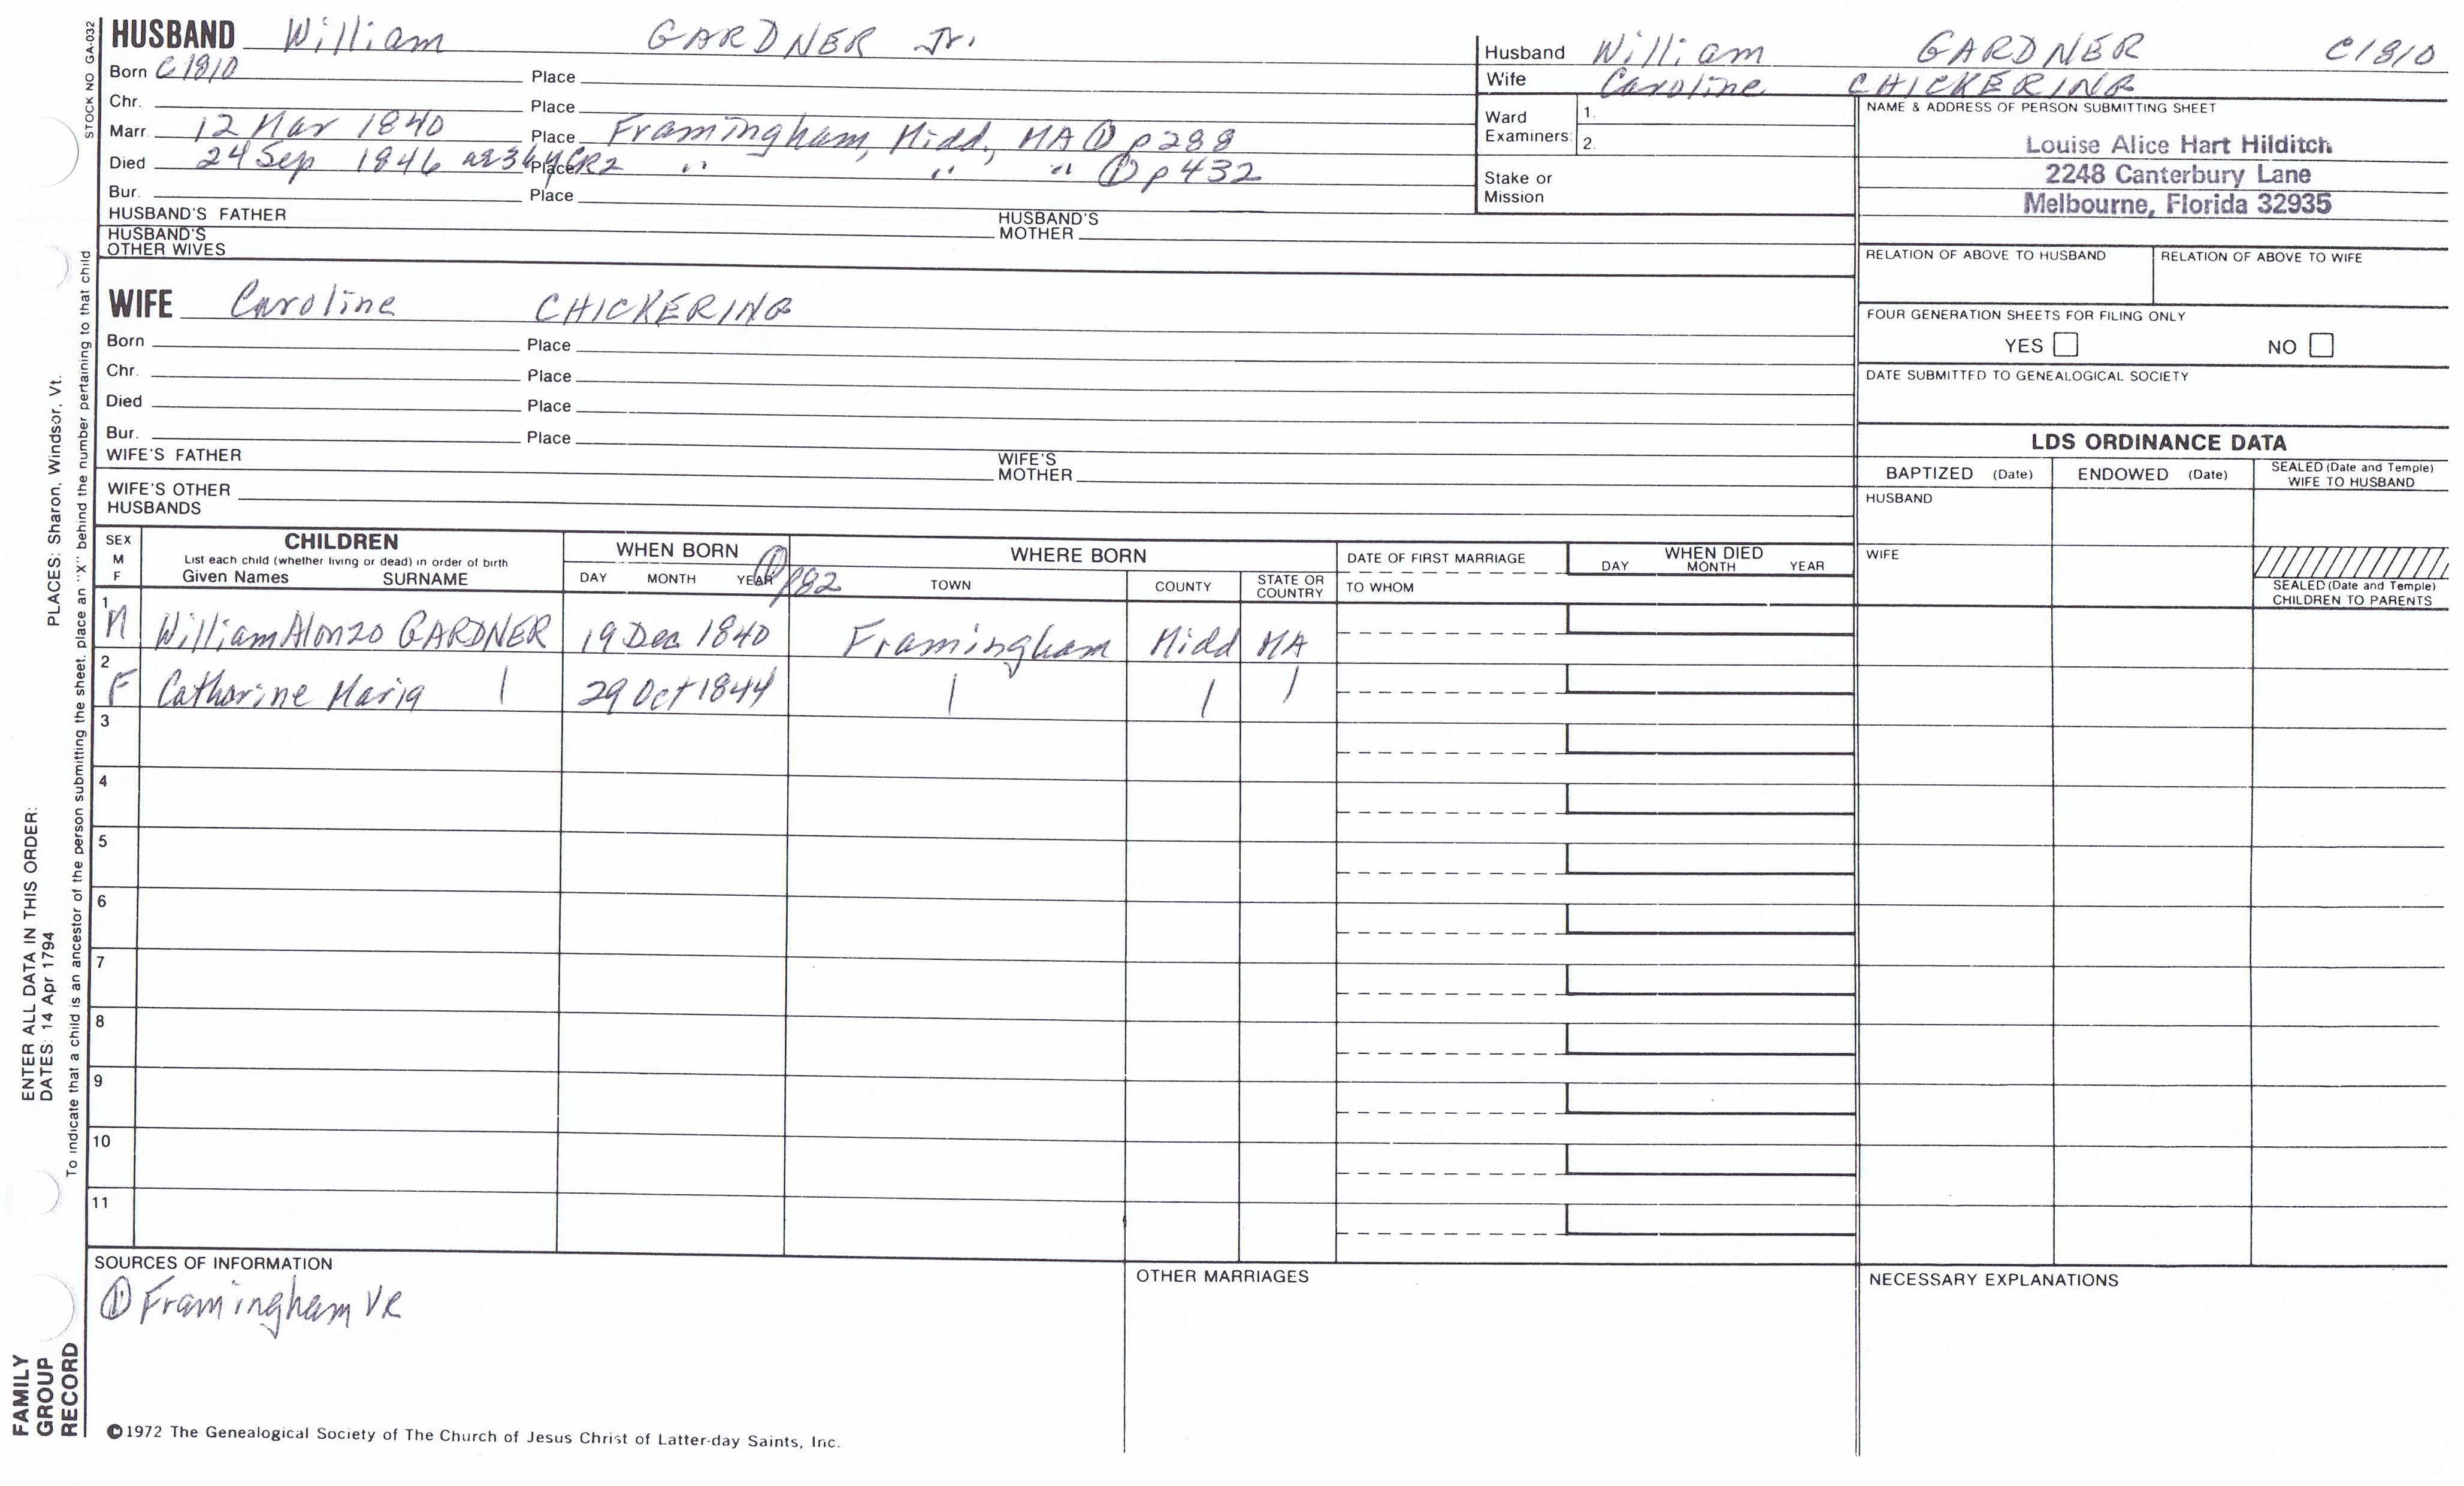 HUSBAND William GARDNER Jr.
Born C1810 Place
Chr. Place
Marr. 12 Mar 1840 Place Framingham, Midd., MA ① p288
Died 24 Sep 1846 ae 36y GR2 Place " " " ① p432
Bur. Place
HUSBAND'S FATHER HUSBAND'S MOTHER
HUSBAND'S OTHER WIVES
Husband William GARDNER C1810
Wife Caroline CHICKERING
Ward Examiners: 1.
2.
Stake or Mission
NAME & ADDRESS OF PERSON SUBMITTING SHEET
Louise Alice Hart Hilditch
2248 Canterbury Lane
Melbourne, Florida 32935
RELATION OF ABOVE TO HUSBAND RELATION OF ABOVE TO WIFE
FOUR GENERATION SHEETS FOR FILING ONLY
YES NO
DATE SUBMITTED TO GENEALOGICAL SOCIETY
WIFE Caroline CHICKERING
Born Place
Chr. Place
Died Place
Bur. Place
WIFE'S FATHER WIFE'S MOTHER
WIFE'S OTHER HUSBANDS
LDS ORDINANCE DATA
BAPTIZED (Date) ENDOWED (Date) SEALED (Date and Temple) WIFE TO HUSBAND
HUSBAND
WIFE
SEALED (Date and Temple) CHILDREN TO PARENTS
SEX M F
CHILDREN
List each child (whether living or dead) in order of birth
Given Names SURNAME
WHEN BORN
DAY MONTH YEAR ① p82
WHERE BORN
TOWN COUNTY STATE OR COUNTRY
DATE OF FIRST MARRIAGE
TO WHOM
WHEN DIED
DAY MONTH YEAR
1 M William Alonzo GARDNER 19 Dec 1840 Framingham Midd MA
2 F Catharine Maria | 29 Oct 1844 | | |
3
4
5
6
7
8
9
10
11
SOURCES OF INFORMATION
① Framingham VR
OTHER MARRIAGES
NECESSARY EXPLANATIONS
©1972 The Genealogical Society of The Church of Jesus Christ of Latter-day Saints, Inc.
STOCK NO GA-032
FAMILY GROUP RECORD
ENTER ALL DATA IN THIS ORDER:
DATES: 14 Apr 1794 PLACES: Sharon, Windsor, Vt.
To indicate that a child is an ancestor of the person submitting the sheet, place an "X" behind the number pertaining to that child